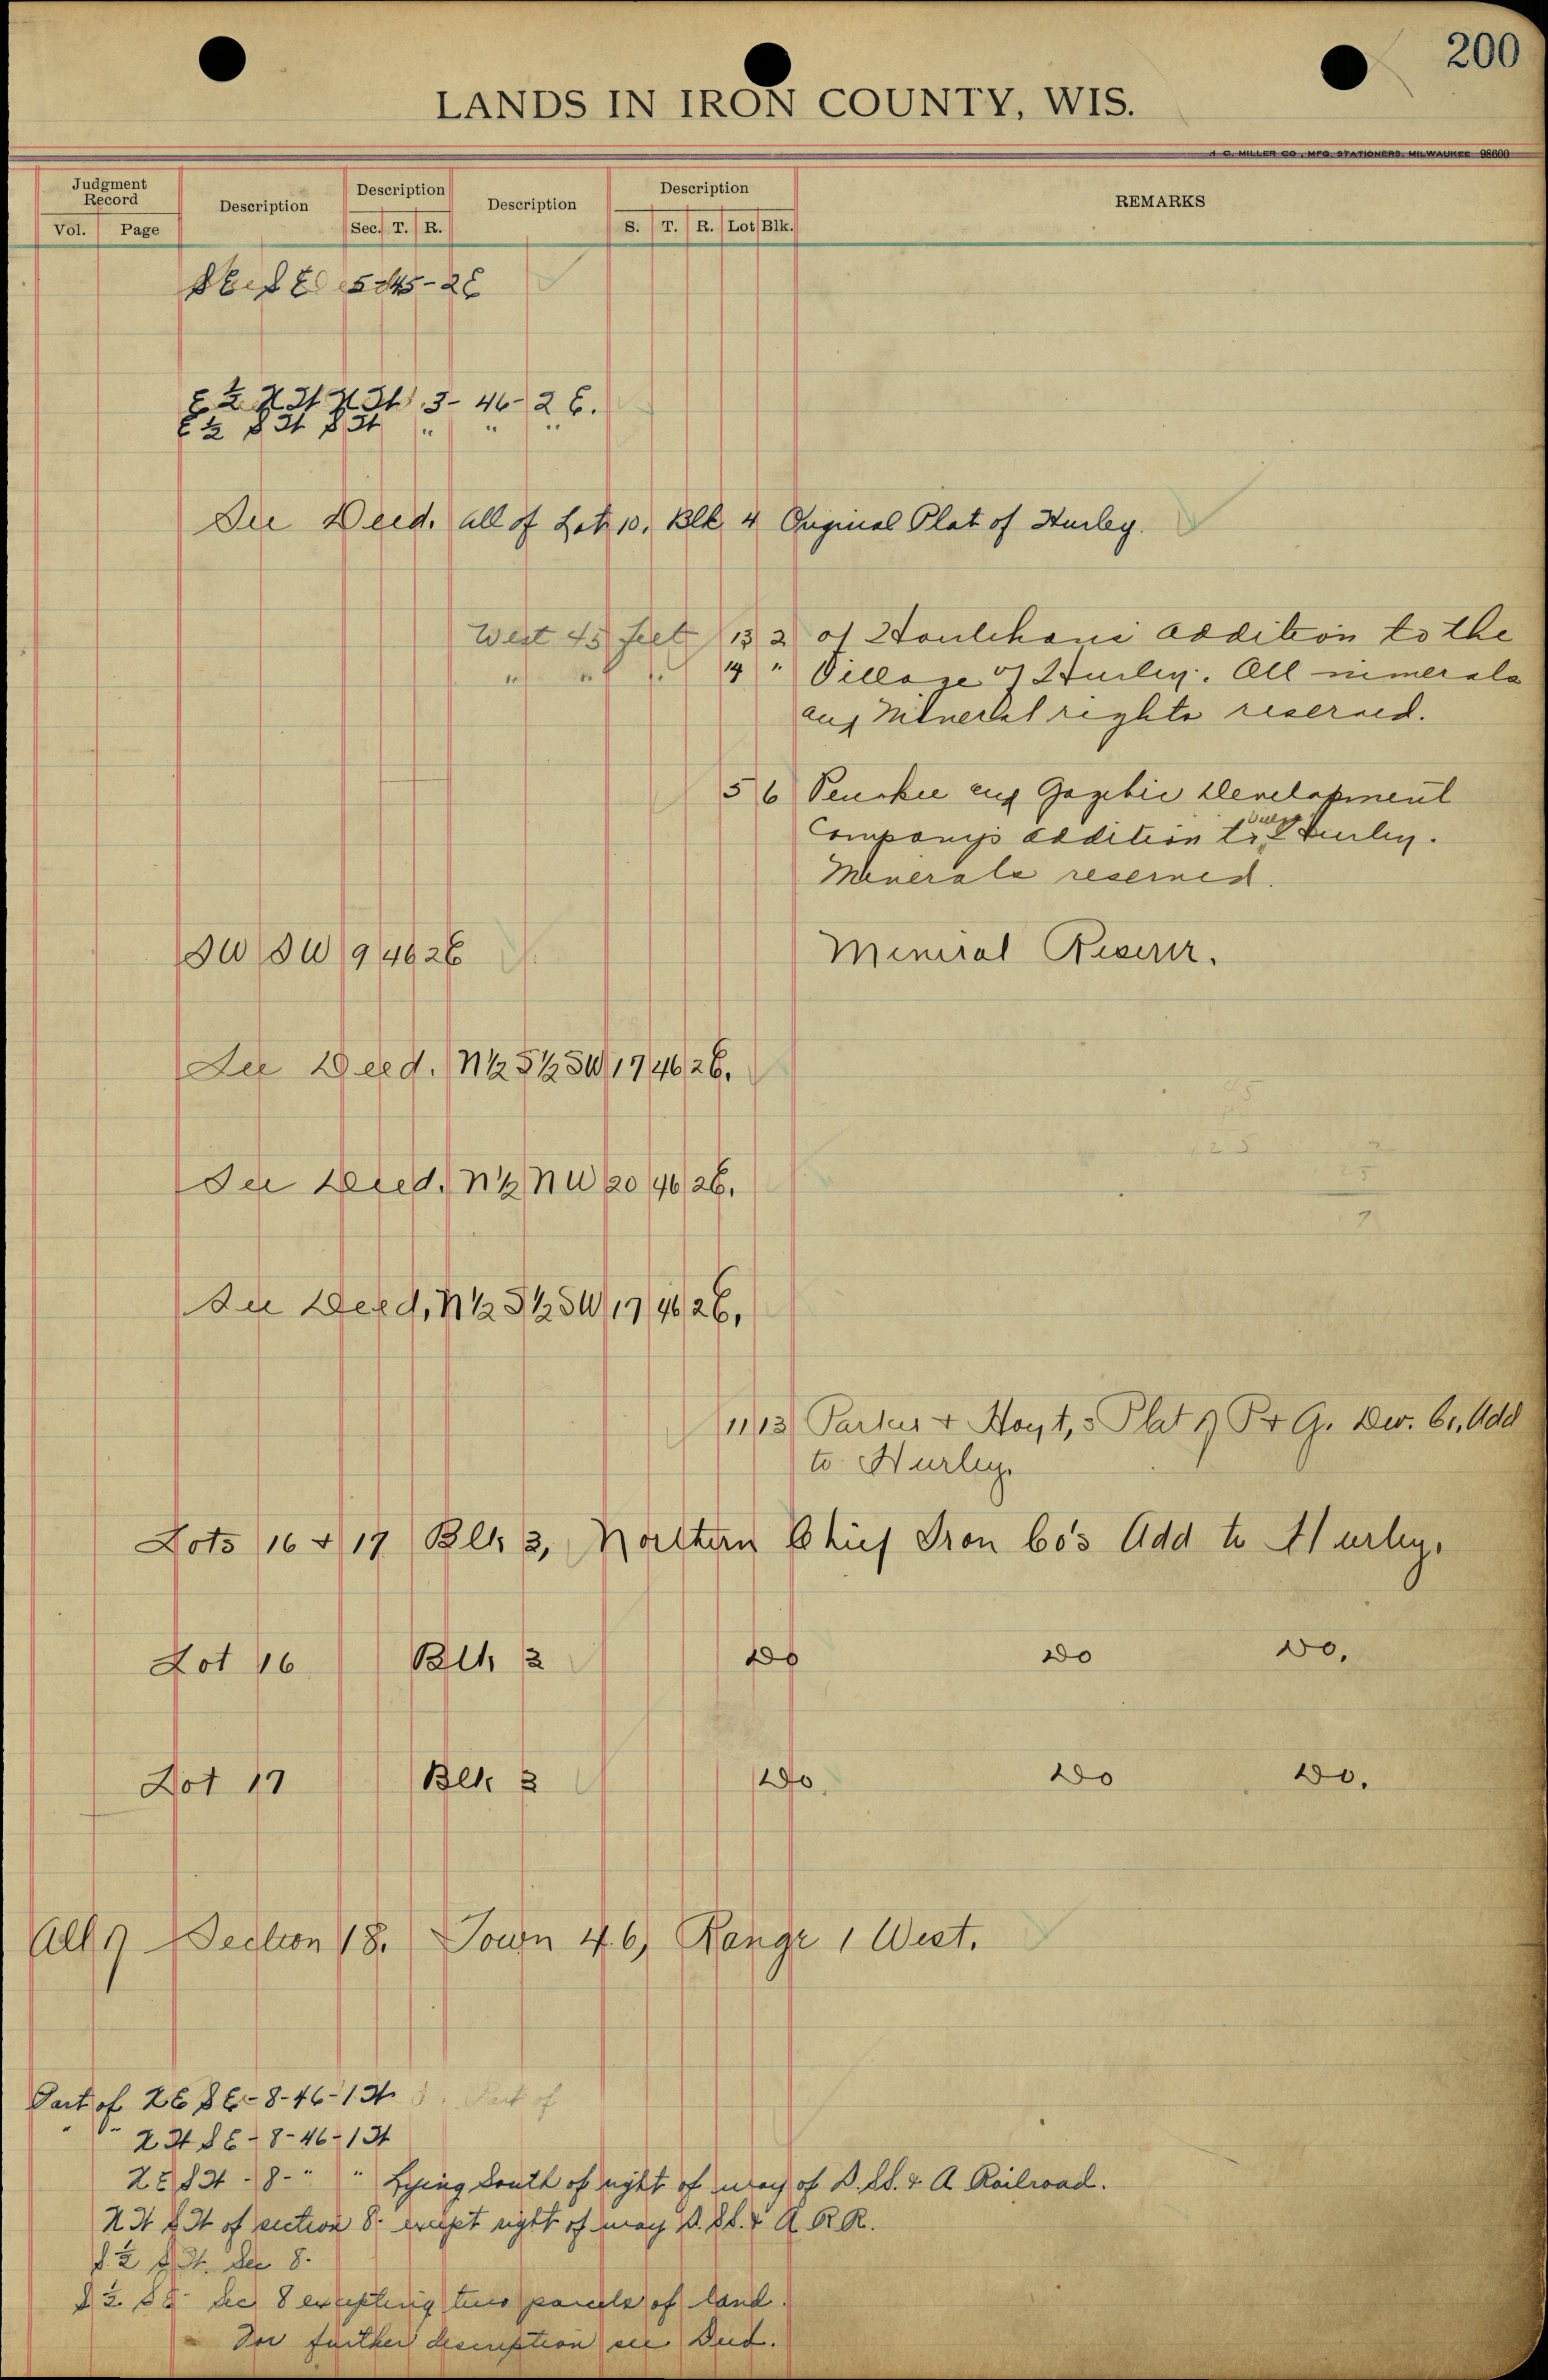 200
LANDS IN IRON COUNTY, WIS.
H. C. MILLER CO., MFG. STATIONERS, MILWAUKEE 98600
Judgment Record Description Description Description Description REMARKS
Vol. Page Sec. T. R. S. T. R. Lot Blk.
SE SE 5-45-2E
E ½ N W N W 3-46-2 E.
E ½ S W S W " " "
See Deed. all of Lot 10, Blk 4 Original Plat of Hurley.
West 45 feet 13 2 of Houlehans addition to the
" " " 14 " Village of Hurley. All minerals
and Mineral rights reserved.
5 6 Penokee and Gogebic Development
Company's addition to Hurley.
Minerals reserved.
SW SW 9 46 2E Mineral Reserv.
See Deed. N½ S½ SW 17 46 2E.
See Deed. N½ NW 20 46 2E.
See Deed, N½ S½ SW 17 46 2E,
11 13 Parker & Hoyt,s Plat of P & G. Dev. Co. Add
to Hurley.
Lots 16 & 17 Blk 3, Northern Chief Iron Co's Add to Hurley.
Lot 16 Blk 3 Do Do Do.
Lot 17 Blk 3 Do. Do Do.
All of Section 18. Town 46, Range 1 West.
Part of NE SE-8-46-1W Part of
" " N W S E - 8-46-1W
N E S W - 8- " " Lying South of right of way of D. SS. & A Railroad.
N W S W of section 8. except right of way D. SS. & A R R.
S ½ S W. Sec 8.
S ½. S E Sec 8 excepting two parcels of land.
For further description see Deed.